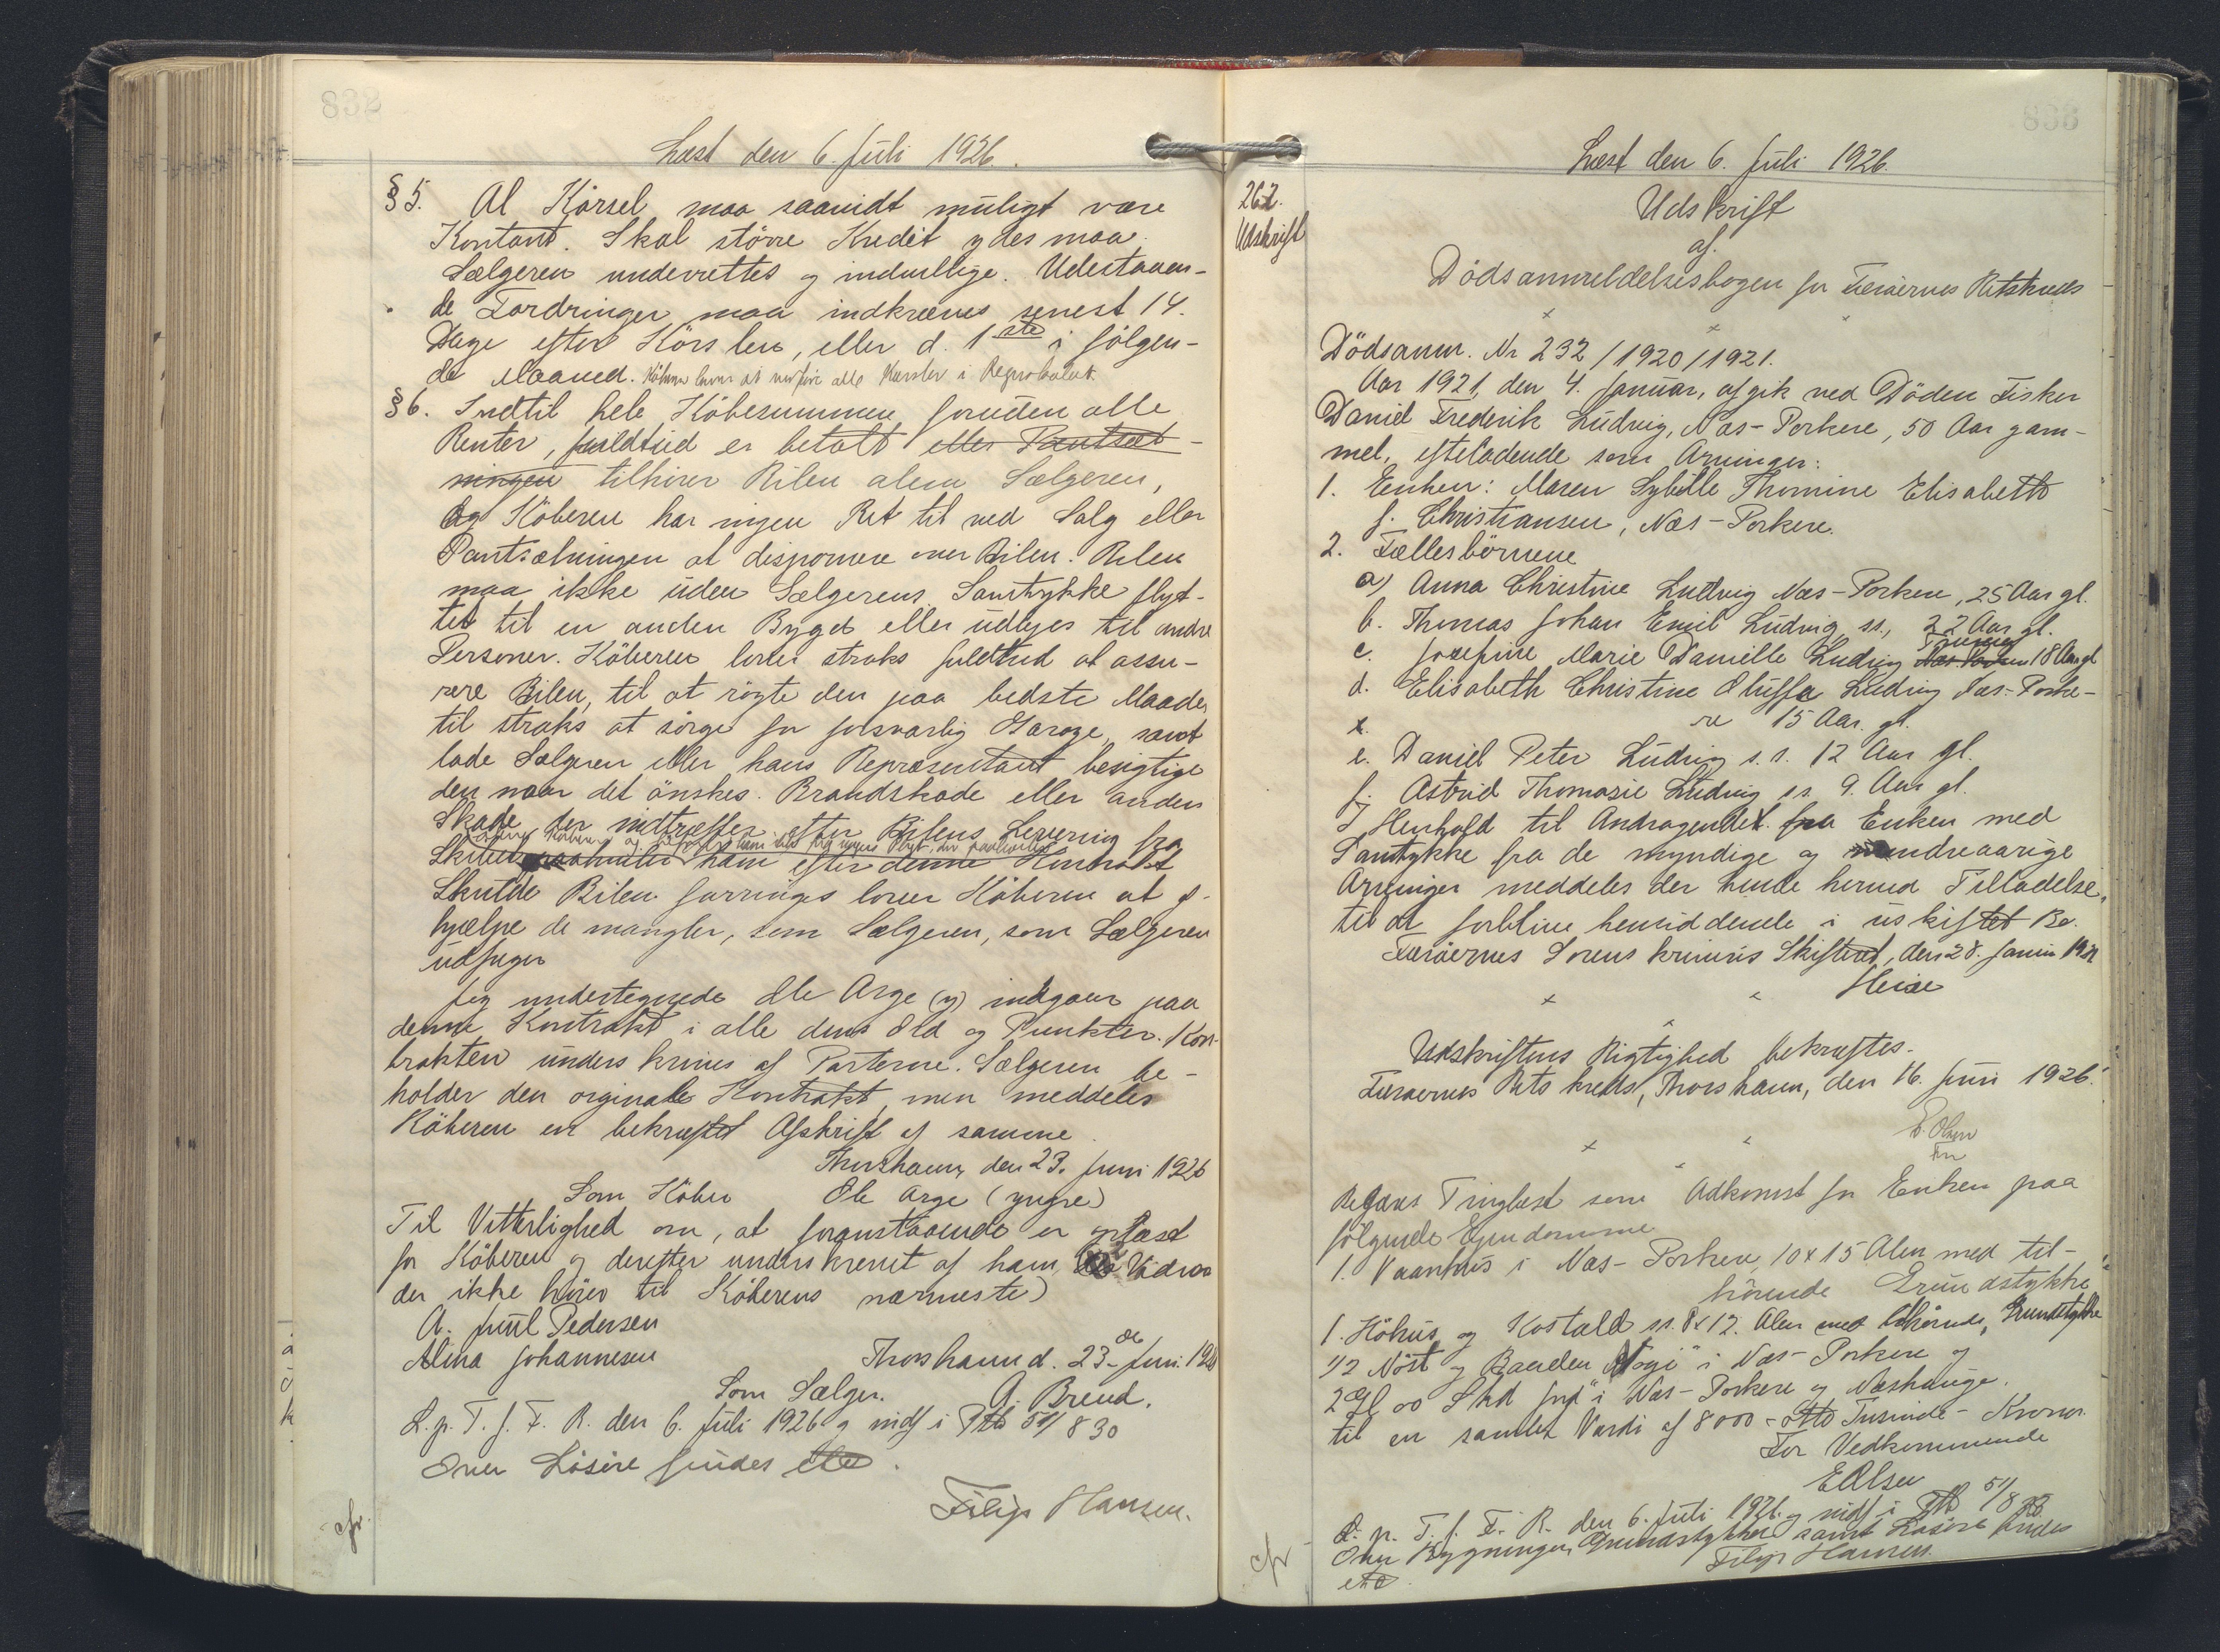 832
Læst den 6. Juli 1926.
§5. Al Körsel maa saavidt muligt være
Kontant. Skal större Kredit ydes maa
Sælgeren underrettes og indvillige. Udestaaen-
de Fordringer maa indkræves senest 14.
Dage efter Körslen, eller d. 1ste i følgen-
de Maaned. Köberen lover at indføre alle Kørsler i Regnskabet.
§6. Indtil hele Köbesummen foruden alle
Renter, fuldtud er betalt eller Pantsæt-
ningen tilhörer Bilen alene Sælgeren,
Og Köberen har ingen Ret til ved Salg eller
Pantsætningen at disponere over Bilen. Bilen
maa ikke uden Sælgerens Samtykke flyt-
tes til en anden Bygd eller udlejes til andre
Personer. Köberen lover straks fuldtud at assu-
rere Bilen, til at rögte den paa bedste Maade,
til straks at sörge for forsvarlig Garage, samt
lade Sælgeren eller hans Repræsentant besigtige
den naar det önskes. Brandskade eller anden
Skade der indtræffer efter Bilens Levering fra
ham efter denne Kontrakt
Skulde Bilen forringes lover Köberen at af-
hjælpe de mangler, som Sælgeren, som Sælgeren
udpeger
Jeg undertegnede Ole Arge (y) indgaar paa
denne Kontrakt i alle dens Ord og Punkter. Kon-
trakten underskrives af Parterne. Sælgeren be-
holder den orginale Kontrakt, men meddeles
Köberen en bekræftet Afskrift af samme.
Thorshavn, den 23. Juni 1926
Som Köber Ole Arge (yngre)
Til Vitterlighed om, at foranstaaende er oplæst
for Köberen og derefter underskrevet af ham,
der ikke hörer til Köberens nærmeste)
A. Juul Pedersen
Alma Johannesen Thorshavn d. 23de Juni 1926
Som Sælger. A. Brend.
L. p. T. f. F. R. den 6. Juli 1926 og indf i Ptb 51/830
Over Lösöre findes
Filip Hansen.
cfr.
833
Læst den 6. Juli 1926.
262.
Udskrift
Udskrift
af
Dödsanmeldelsesbogen for Færöernes Retskreds
Dödsanm. Nr 232 / 1920 / 1921.
Aar 1921, den 4. Januar, afgik ved Döden Fisker
Daniel Frederik Ludvig, Næs-Porkere, 50 Aar gam-
mel, efteladende som Arvinger:
1. Enken: Maren Sybille Thomine Elisabeth
f. Christiansen, Næs-Porkere.
2. Fællesbörnene
a) Anna Christine Ludvig Næs-Porkere, 25 Aar gl.
b. Thomas Johan Emil Ludvig ss., 22 Aar gl.
c. Josefine Marie Danielle Ludvig 18 Aar gl
d. Elisabeth Christine Oluffa Ludvig Næs-Porke-
re 15 Aar. gl.
e. Daniel Peter Ludvig s.s. 12 Aar gl.
f. Astrid Thomasie Ludvig ss. 9. Aar gl.
I Henhold til Andragendet fra Enken med
Samtykke fra de myndige og mindreaarige
Arvinger meddeles der hende herved Tilladelse,
til at forblive hensiddende i uskiftet Bo.
Færöernes Sorenskriveris Skifteret, den 28. Januar 1921
Heise
Udskriftens Rigtighed bekræftes.
Færöernes Retskreds, Thorshavn, den 16. Juni 1926.
E. Olsen
Fm
Begæres Tinglæst som Adkomst for Enken paa
följende Ejendomme
1. Vaanhus i Næs-Porkere, 10 x 15 Alen med til-
hörende Grundstykke
1. Höhus og Kostald ss. 8 x 12. Alen med tilhörende Grundstykke
1/2 Nöst og Baaden i Næs-Porkere og
2 Gl. 00 Skd Jord i Næs-Porkere og Næshauge.
til en samlet Værdi af 8000 - otte Tusinde - Kroner
For Vedkommende
E Olsen
L. p. T. f. F. R. den 6. Juli 1926. og indf i Ptb 51/833
Over Bygningen, Grundstykker samt Lösöre findes
Filip Hansen.
cfr